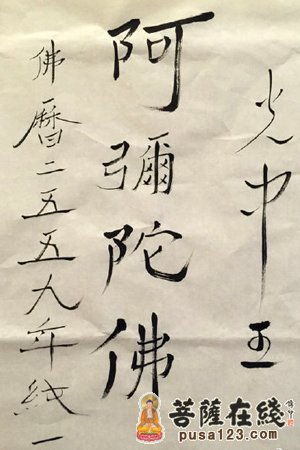 光中王
阿彌陀佛
佛曆二五五九年純一
菩薩在綫
pusa123.com